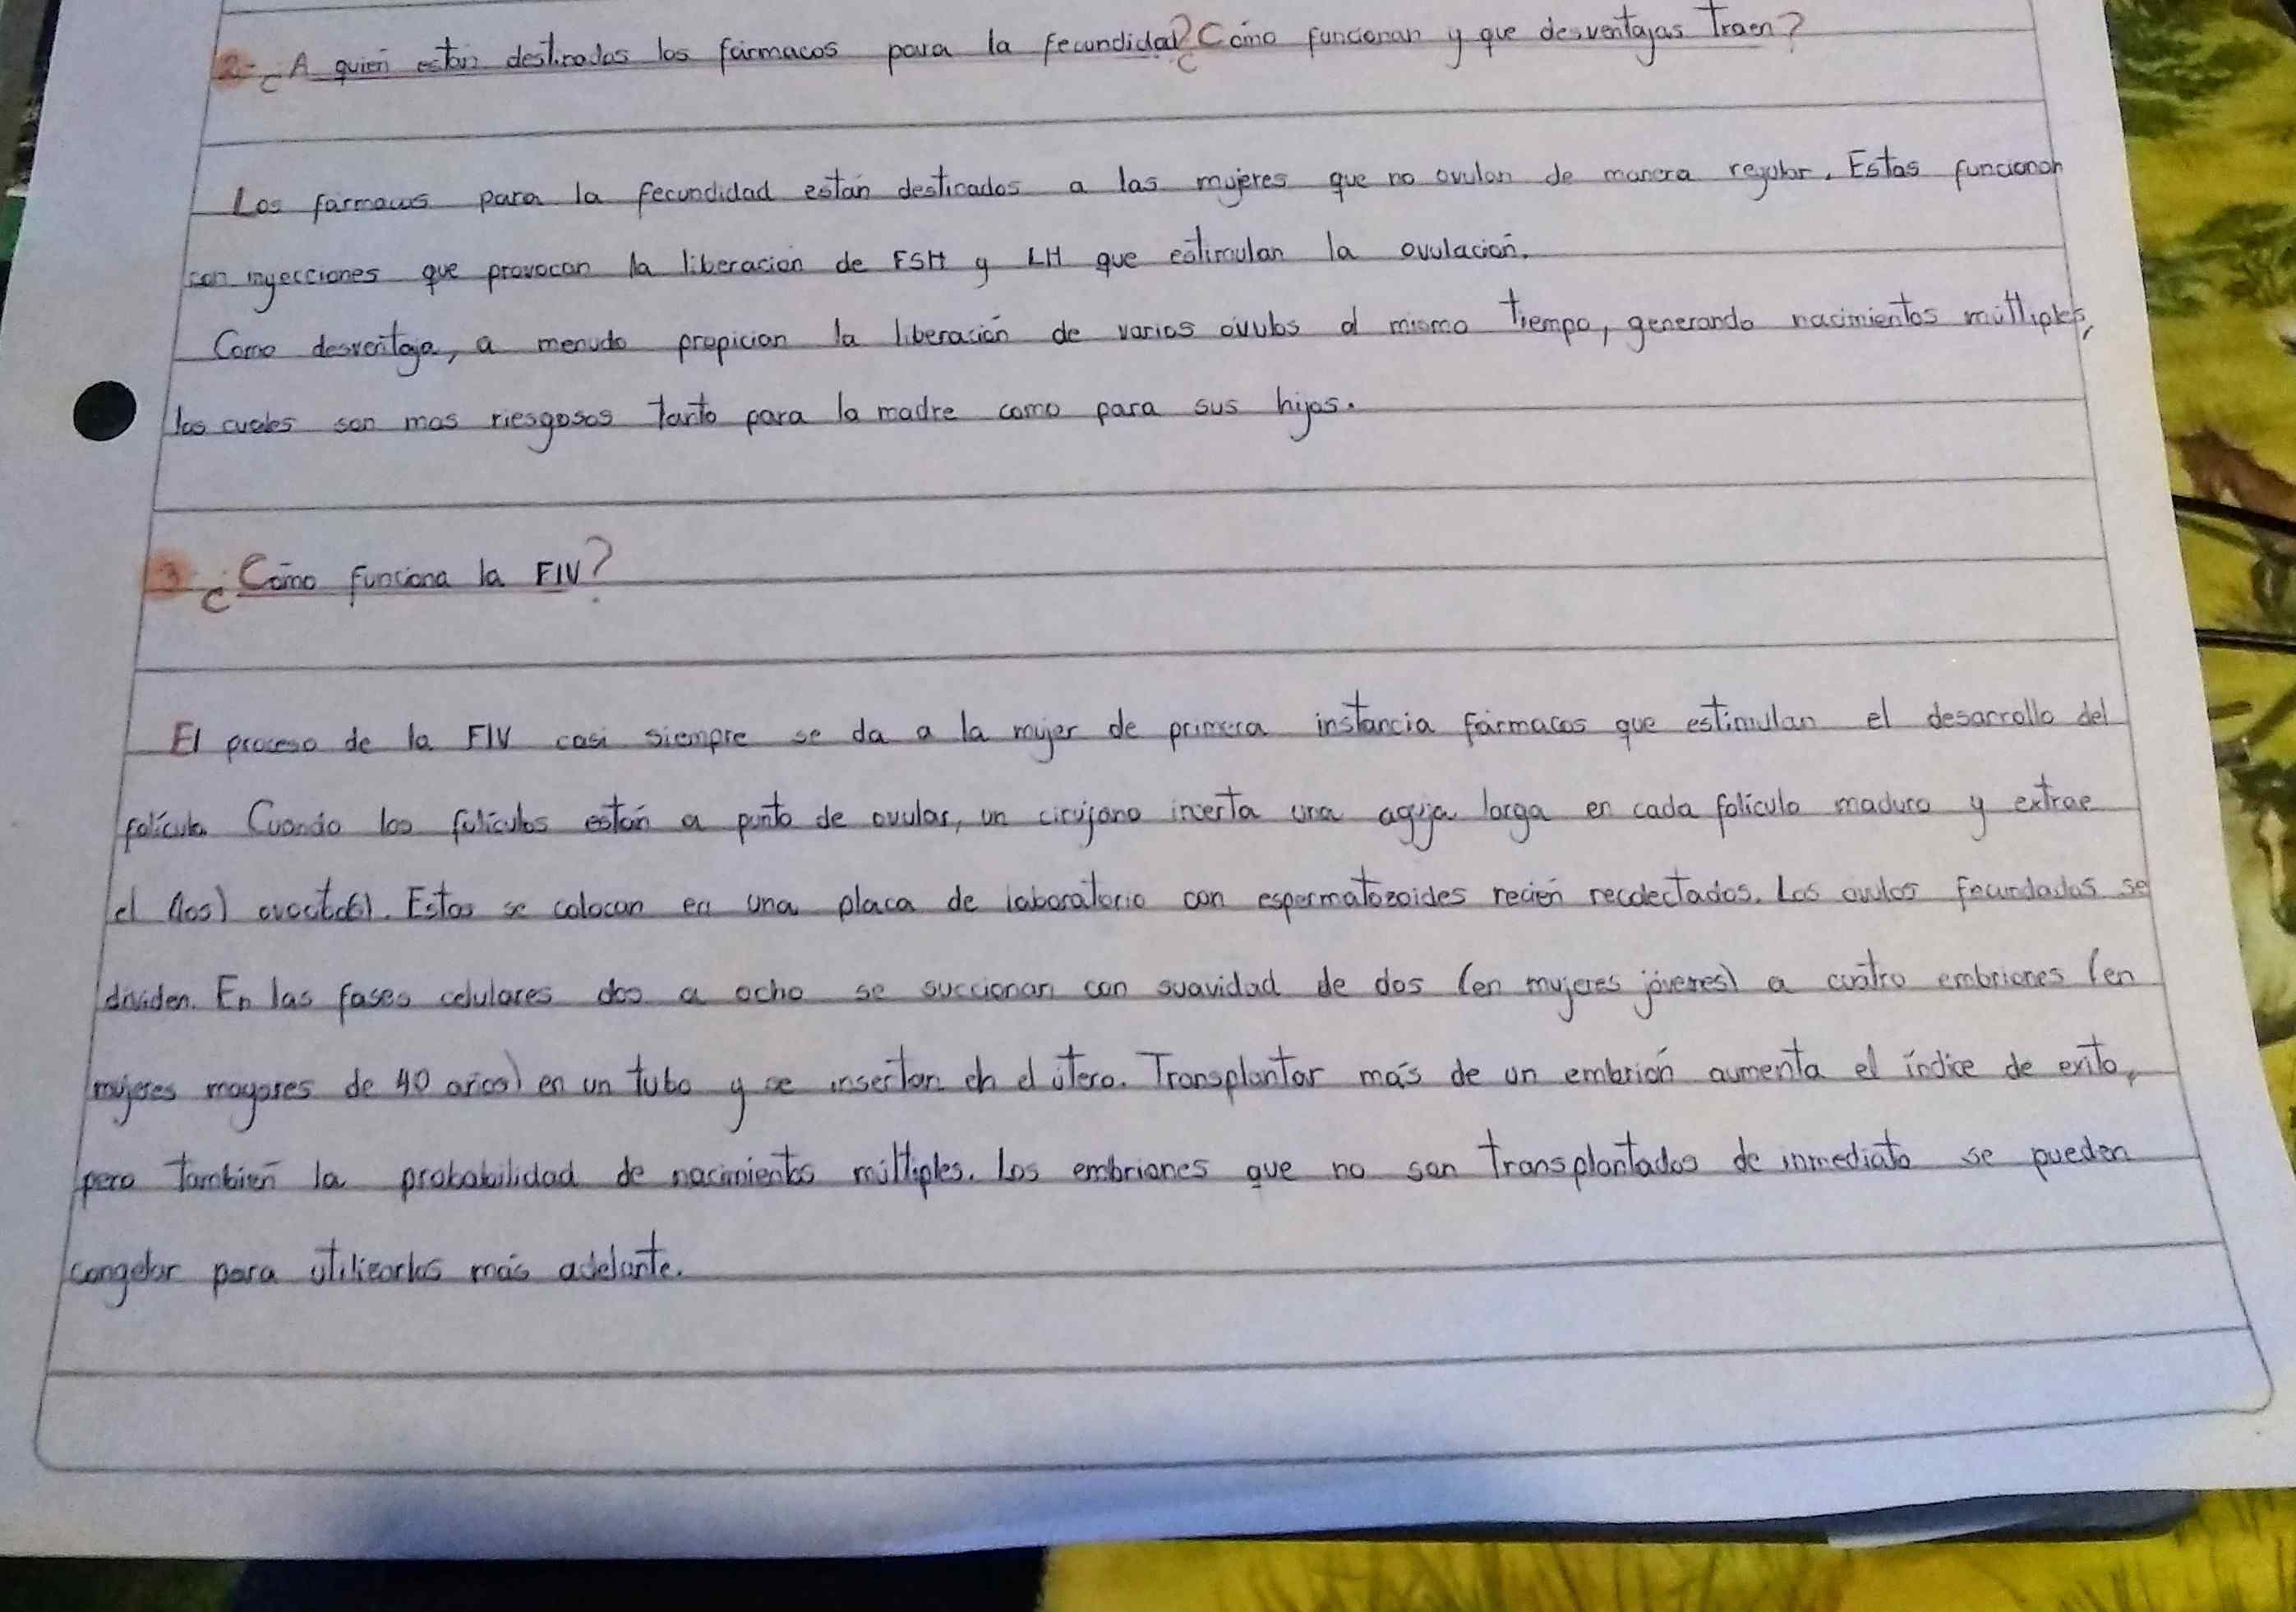 2- ¿A quién están destinados los fármacos para la fecundidad? ¿Cómo funcionan y que desventajas traen?
Los fármacos para la fecundidad están destinados a las mujeres que no ovulan de manera regular. Estas funcionan
con inyecciones que provocan la liberación de FSH y LH que estimulan la ovulación.
Como desventaja, a menudo propician la liberación de varios óvulos al mismo tiempo, generando nacimientos múltiples,
los cuales son mas riesgosos tanto para la madre como para sus hijos.
3- ¿Cómo funciona la FIV?
El proceso de la FIV casi siempre se da a la mujer de primera instancia fármacos que estimulan el desarrollo del
folículo. Cuando los folículos están a punto de ovular, un cirujano incerta una aguja larga en cada folículo maduro y extrae
el (los) ovocito(s). Estos se colocan en una placa de laboratorio con espermatozoides recién recolectados. Los óvulos fecundados se
dividen. En las fases celulares dos a ocho se succionan con suavidad de dos (en mujeres jóvenes) a cuatro embriones (en
mujeres mayores de 40 años) en un tubo y se insertan en el útero. Transplantar más de un embrión aumenta el índice de exito,
pero también la probabilidad de nacimientos múltiples. Los embriones que no son transplantados de inmediato se pueden
congelar para utilizarlos más adelante.